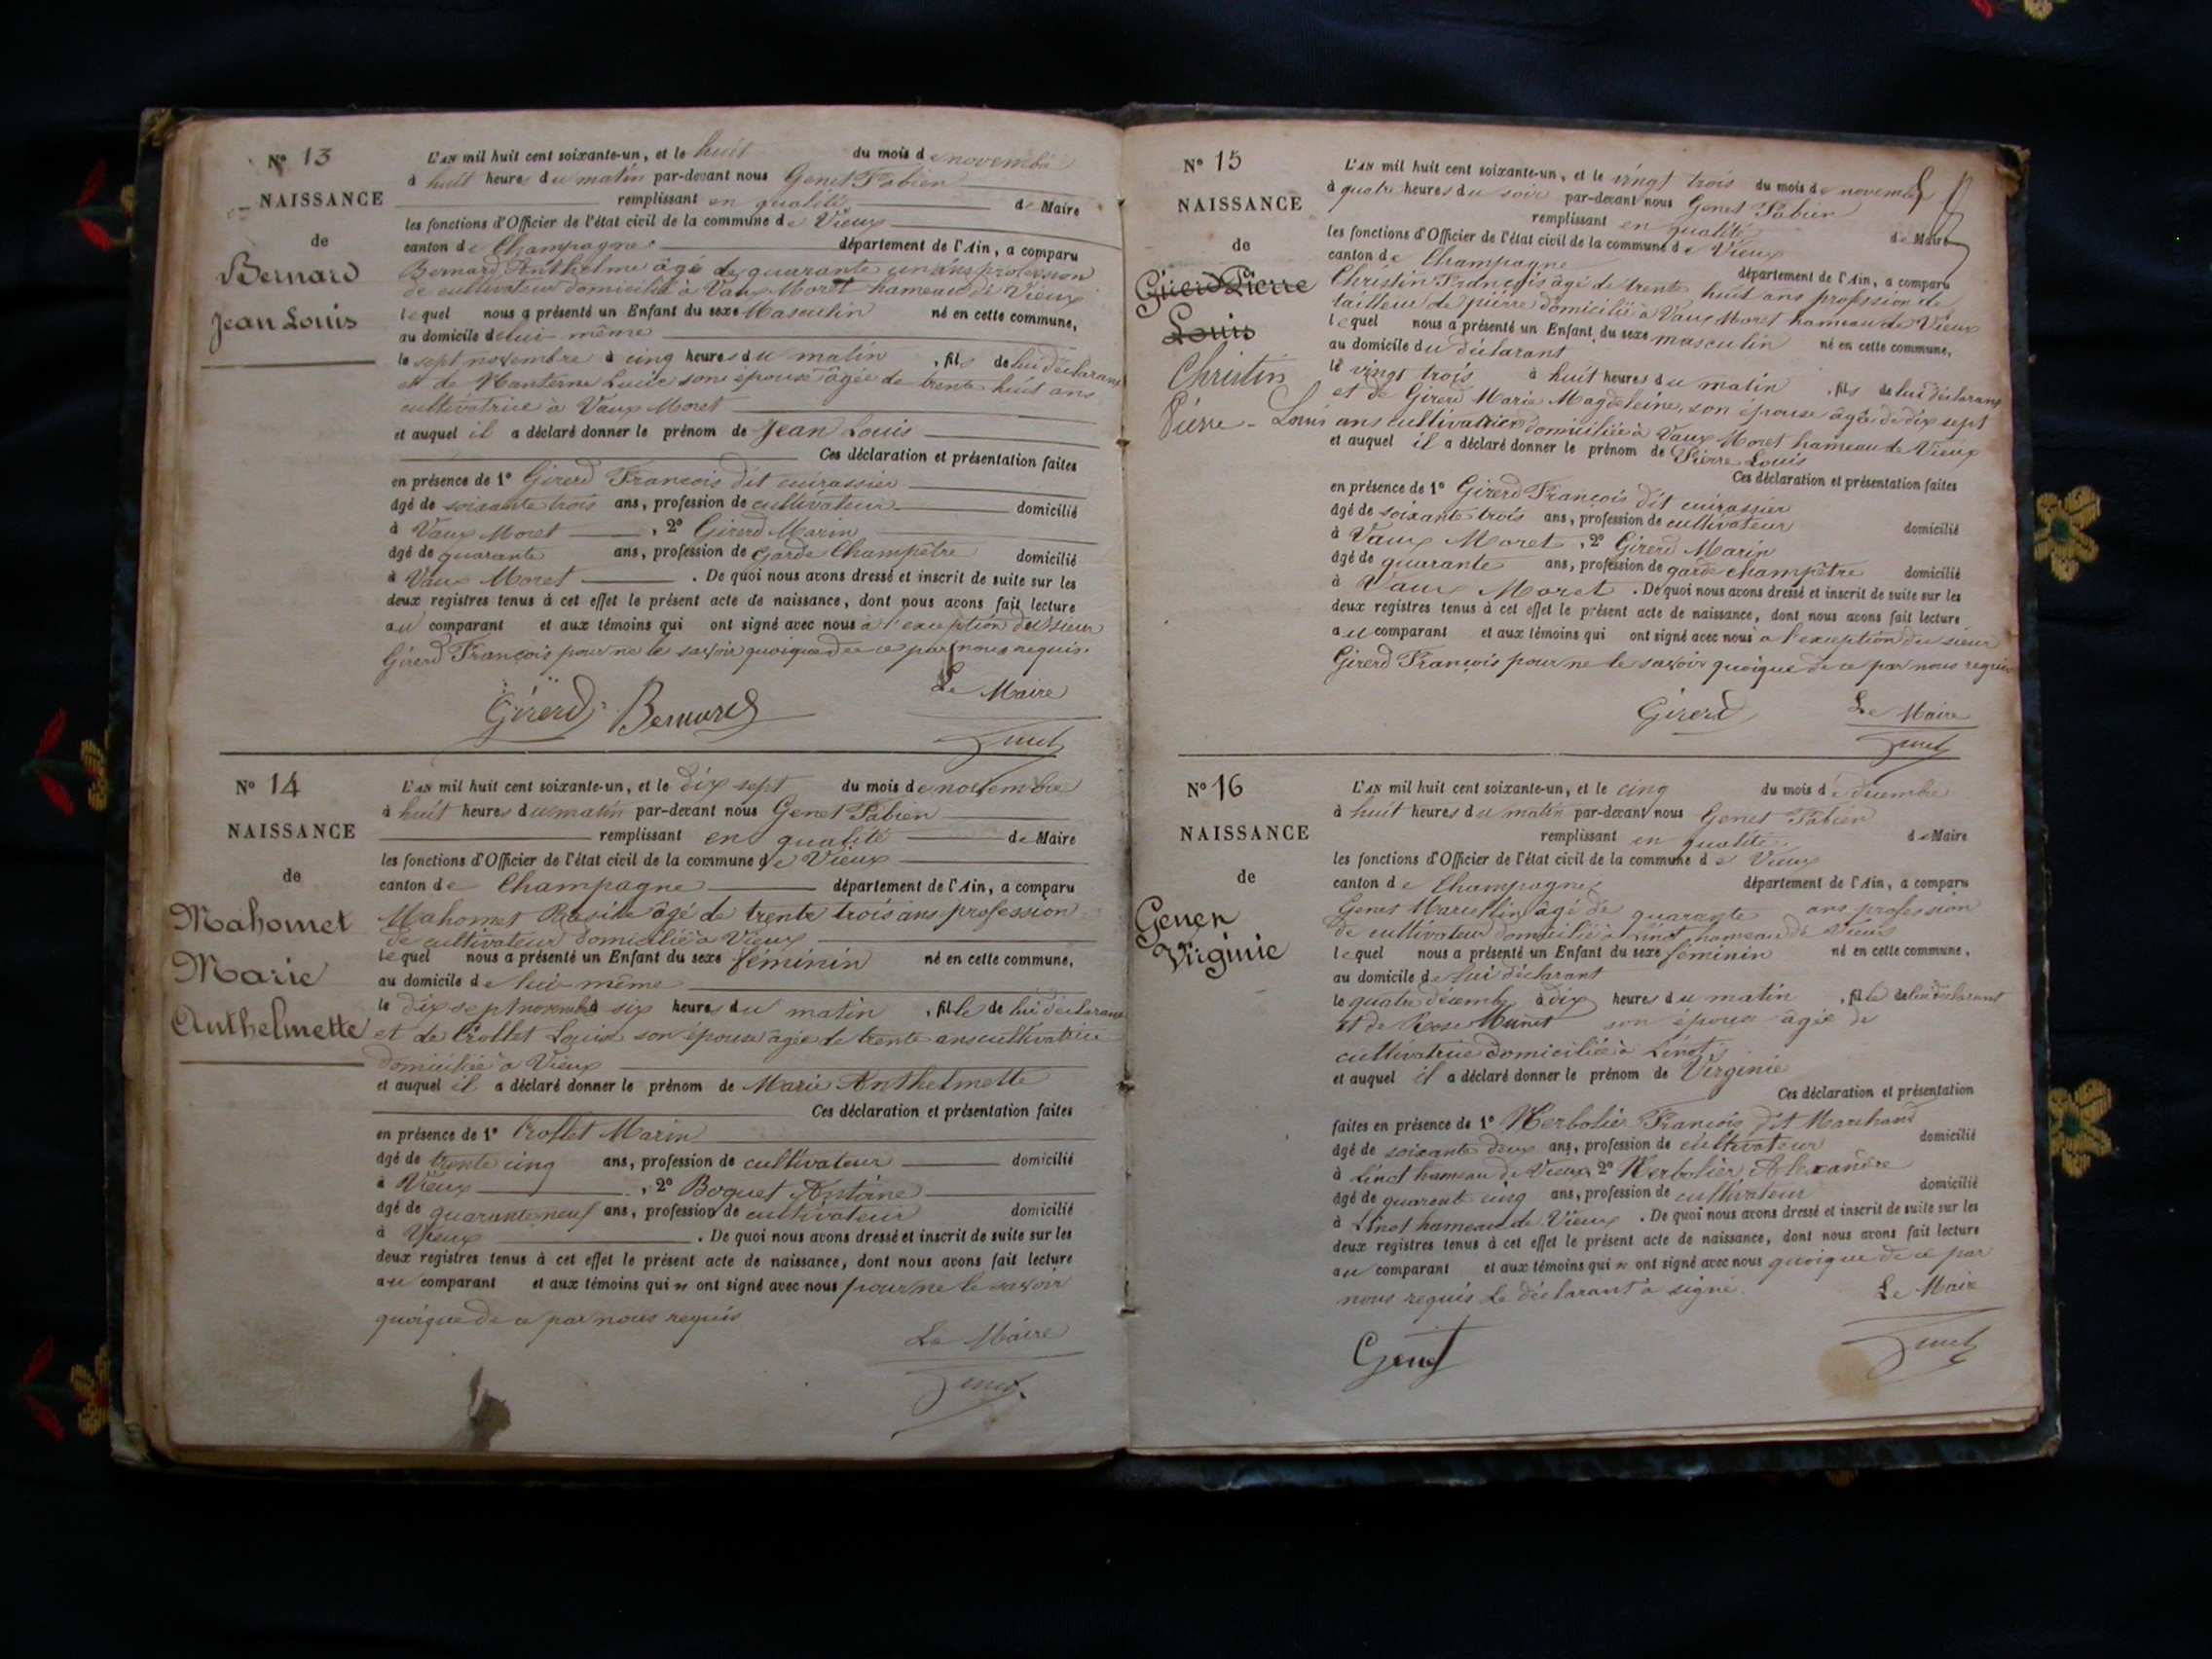 N° 13
NAISSANCE
de
Bernard
Jean Louis
L'AN mil huit cent soixante-un, et le huit du mois de novembre
à huit heures du matin par-devant nous Genet Fabien
remplissant en qualité de Maire
les fonctions d'Officier de l'état civil de la commune de Vieux
canton de Champagne département de l'Ain, a comparu
Bernard Anthelme âgé de quarante un ans profession
de cultivateur domicilié à Vaux Moret hameau de Vieux
lequel nous a présenté un Enfant du sexe Masculin né en cette commune,
au domicile de lui même
le sept novembre à cinq heures du matin , fils de lui déclarant
et de son épouse âgée de trente huit ans
cultivatrice à Vaux Moret
et auquel il a déclaré donner le prénom de Jean Louis
Ces déclaration et présentation faites
en présence de 1° Girerd François dit cuirassier
âgé de soixante trois ans, profession de cultivateur domicilié
à Vaux Moret , 2° Girerd Marin
âgé de quarante ans, profession de garde Champêtre domicilié
à Vaux Moret . De quoi nous avons dressé et inscrit de suite sur les
deux registres tenus à cet effet le présent acte de naissance, dont nous avons fait lecture
au comparant et aux témoins qui ont signé avec nous à l'exception du sieur
Girerd François pour ne le savoir quoique de ce par nous requis.
Le Maire
Girerd Bernard
Genet
N° 14
NAISSANCE
de
Mahomet
Marie
Anthelmette
L'AN mil huit cent soixante-un, et le dix sept du mois de novembre
à huit heures du matin par-devant nous Genet Fabien
remplissant en qualité de Maire
les fonctions d'Officier de l'état civil de la commune de Vieux
canton de Champagne département de l'Ain, a comparu
Mahomet âgé de trente trois ans profession
de cultivateur domicilié à Vieux
lequel nous a présenté un Enfant du sexe féminin né en cette commune,
au domicile de lui-même
le dix sept novembre à six heures du matin , fille de lui déclarant
et de Crollet son épouse âgée de trente ans cultivatrice
domiciliée à Vieux
et auquel il a déclaré donner le prénom de Marie Anthelmette
Ces déclaration et présentation faites
en présence de 1° Crollet Marin
âgé de trente cinq ans, profession de cultivateur domicilié
à Vieux , 2° Boquet Antoine
âgé de quarante neuf ans, profession de cultivateur domicilié
à Vieux . De quoi nous avons dressé et inscrit de suite sur les
deux registres tenus à cet effet le présent acte de naissance, dont nous avons fait lecture
au comparant et aux témoins qui n ont signé avec nous pour ne le savoir
quoique de ce par nous requis
Le Maire
Genet
N° 15
NAISSANCE
de
Girerd Pierre
Louis
Christin
Pierre - Louis
L'AN mil huit cent soixante-un, et le vingt trois du mois de novembre
à quatre heures du soir par-devant nous Genet Fabien
remplissant en qualité de Maire
les fonctions d'Officier de l'état civil de la commune de Vieux
canton de Champagne département de l'Ain, a comparu
Christin François âgé de trente huit ans profession de
tailleur de pierre domicilié à Vaux Moret hameau de Vieux
lequel nous a présenté un Enfant du sexe masculin né en cette commune,
au domicile du déclarant
le vingt trois à huit heures du matin , fils de lui déclarant
et de Girerd Marie Magdeleine, son épouse âgée de dix sept
ans cultivatrice domiciliée à Vaux Moret hameau de Vieux
et auquel il a déclaré donner le prénom de Pierre Louis
Ces déclaration et présentation faites
en présence de 1° Girerd François dit cuirassier
âgé de soixante trois ans, profession de cultivateur domicilié
à Vaux Moret , 2° Girerd Marin
âgé de quarante ans, profession de garde champêtre domicilié
à Vaux Moret . De quoi nous avons dressé et inscrit de suite sur les
deux registres tenus à cet effet le présent acte de naissance, dont nous avons fait lecture
au comparant et aux témoins qui ont signé avec nous à l'exception du sieur
Girerd François pour ne le savoir quoique de ce par nous requis
Girerd Le Maire
Genet
N° 16
NAISSANCE
de
Genet
Virginie
L'AN mil huit cent soixante-un, et le cinq du mois de décembre
à huit heures du matin par-devant nous Genet Fabien
remplissant en qualité de Maire
les fonctions d'Officier de l'état civil de la commune de Vieux
canton de Champagne département de l'Ain, a comparu
Genet Marcellin âgé de quarante ans profession
de cultivateur domicilié à Linot hameau de Vieux
lequel nous a présenté un Enfant du sexe féminin né en cette commune,
au domicile de lui déclarant
le quatre décembre à dix heures du matin , fille de lui déclarant
et de Rose son épouse âgée de
cultivatrice domiciliée à Linot
et auquel il a déclaré donner le prénom de Virginie
Ces déclaration et présentation
faites en présence de 1° François dit Marchand
âgé de soixante deux ans, profession de cultivateur domicilié
à Linot hameau de Vieux, 2° Alexandre
âgé de quarante cinq ans, profession de cultivateur domicilié
à Linot hameau de Vieux . De quoi nous avons dressé et inscrit de suite sur les
deux registres tenus à cet effet le présent acte de naissance, dont nous avons fait lecture
au comparant et aux témoins qui n ont signé avec nous quoique de ce par
nous requis Le déclarant a signé. Le Maire
Genet Genet